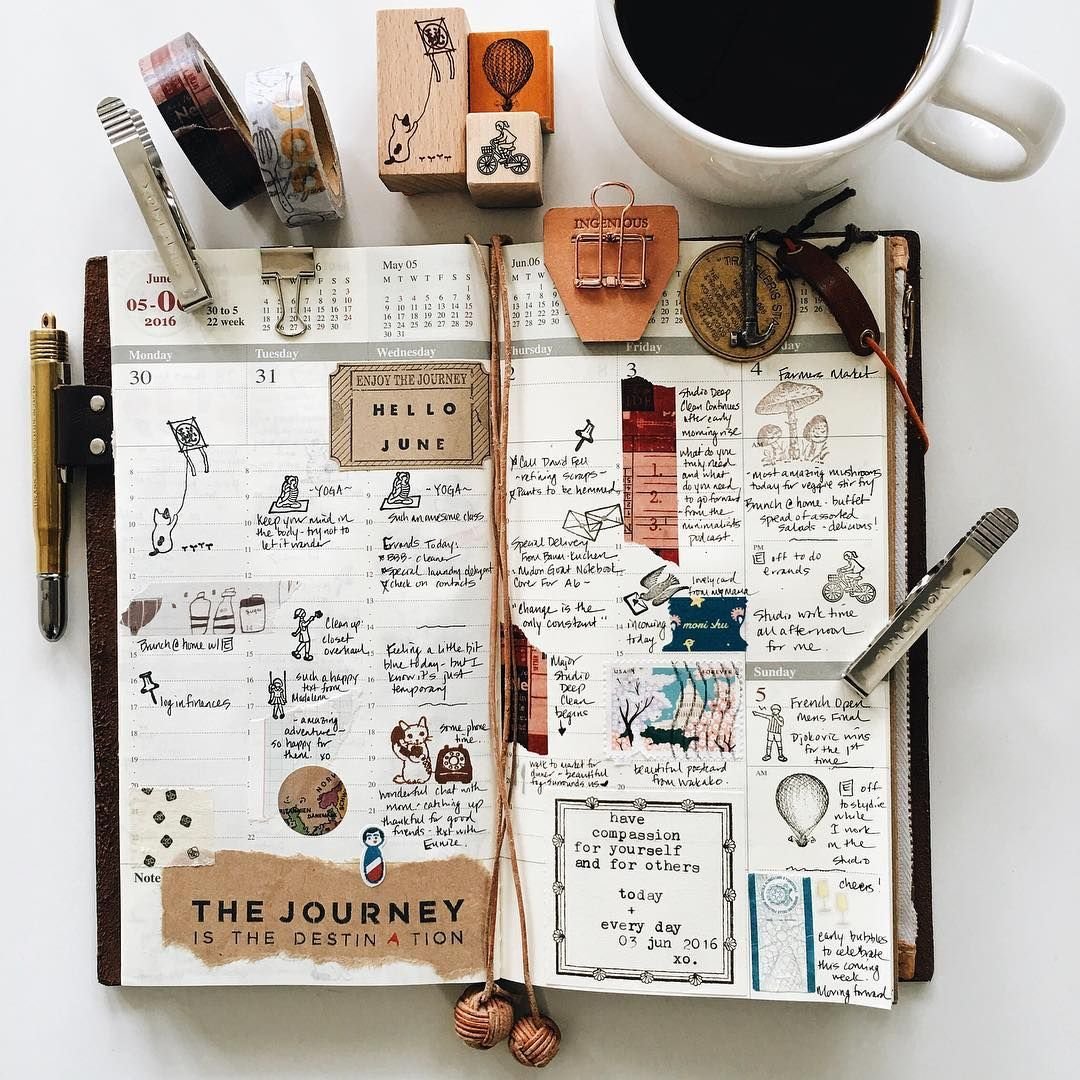 June
05-06
2016
30 to 5
22 week
May 05
M T W T F S S
Jun.06
Monday
Tuesday
Wednesday
30
31
ENJOY THE JOURNEY
HELLO
JUNE
~YOGA~
keep your mind in
the body - try not to
let it wander
~YOGA~
such an awesome class
Errands Today:
BBB - cleaner
special laundry detergent
check on contacts
Sugar
Brunch @ home w/ E
Clean up:
closet
overhaul
log in finances
such a happy
text from
Madalena
- amazing
adventure -
so happy for
them. xo
Feeling a little bit
blue today - but I
know it's just
temporary
some phone
time
wonderful chat with
mom - catching up
thankful for good
friends - text with
Eunice.
Note
THE JOURNEY
IS THE DESTINATION
INGENIOUS
Thursday
Friday
2
3
4
Call David Fell
- refining scraps -
Pants to be hemmed
Special Delivery
From Baum-kuchen
Midori Goat Notebook
Cover For A6 ~
"change is the
only constant"
Major
Studio
Deep
Clean
begins
walk to market for
dinner - beautiful
fog surrounds us
1.
2.
3.
Studio Deep
Clean Continues
after early
morning rise
what do you
truly need
and what
do you need
to go forward
- from the
minimalists
podcast.
lovely card
from my mama
incoming
today.
mori shu
USA
FOREVER
beautiful postcard
from Wakako.
have
compassion
for yourself
and for others
today
+
every day
03 jun 2016
xo.
Farmers Market
AM
- most amazing mushrooms
today for veggie stir fry
Brunch @ home - buffet
spread of assorted
salads - delicious!
PM
E off to do
errands
Studio work time
all afternoon
for me.
Sunday
5
French Open
Mens Final
Djokovic wins
for the 1st
time
AM
E off
to skydive
while
I work
in the
studio
cheers!
early bubbles
to celebrate
this coming
week.
Moving forward